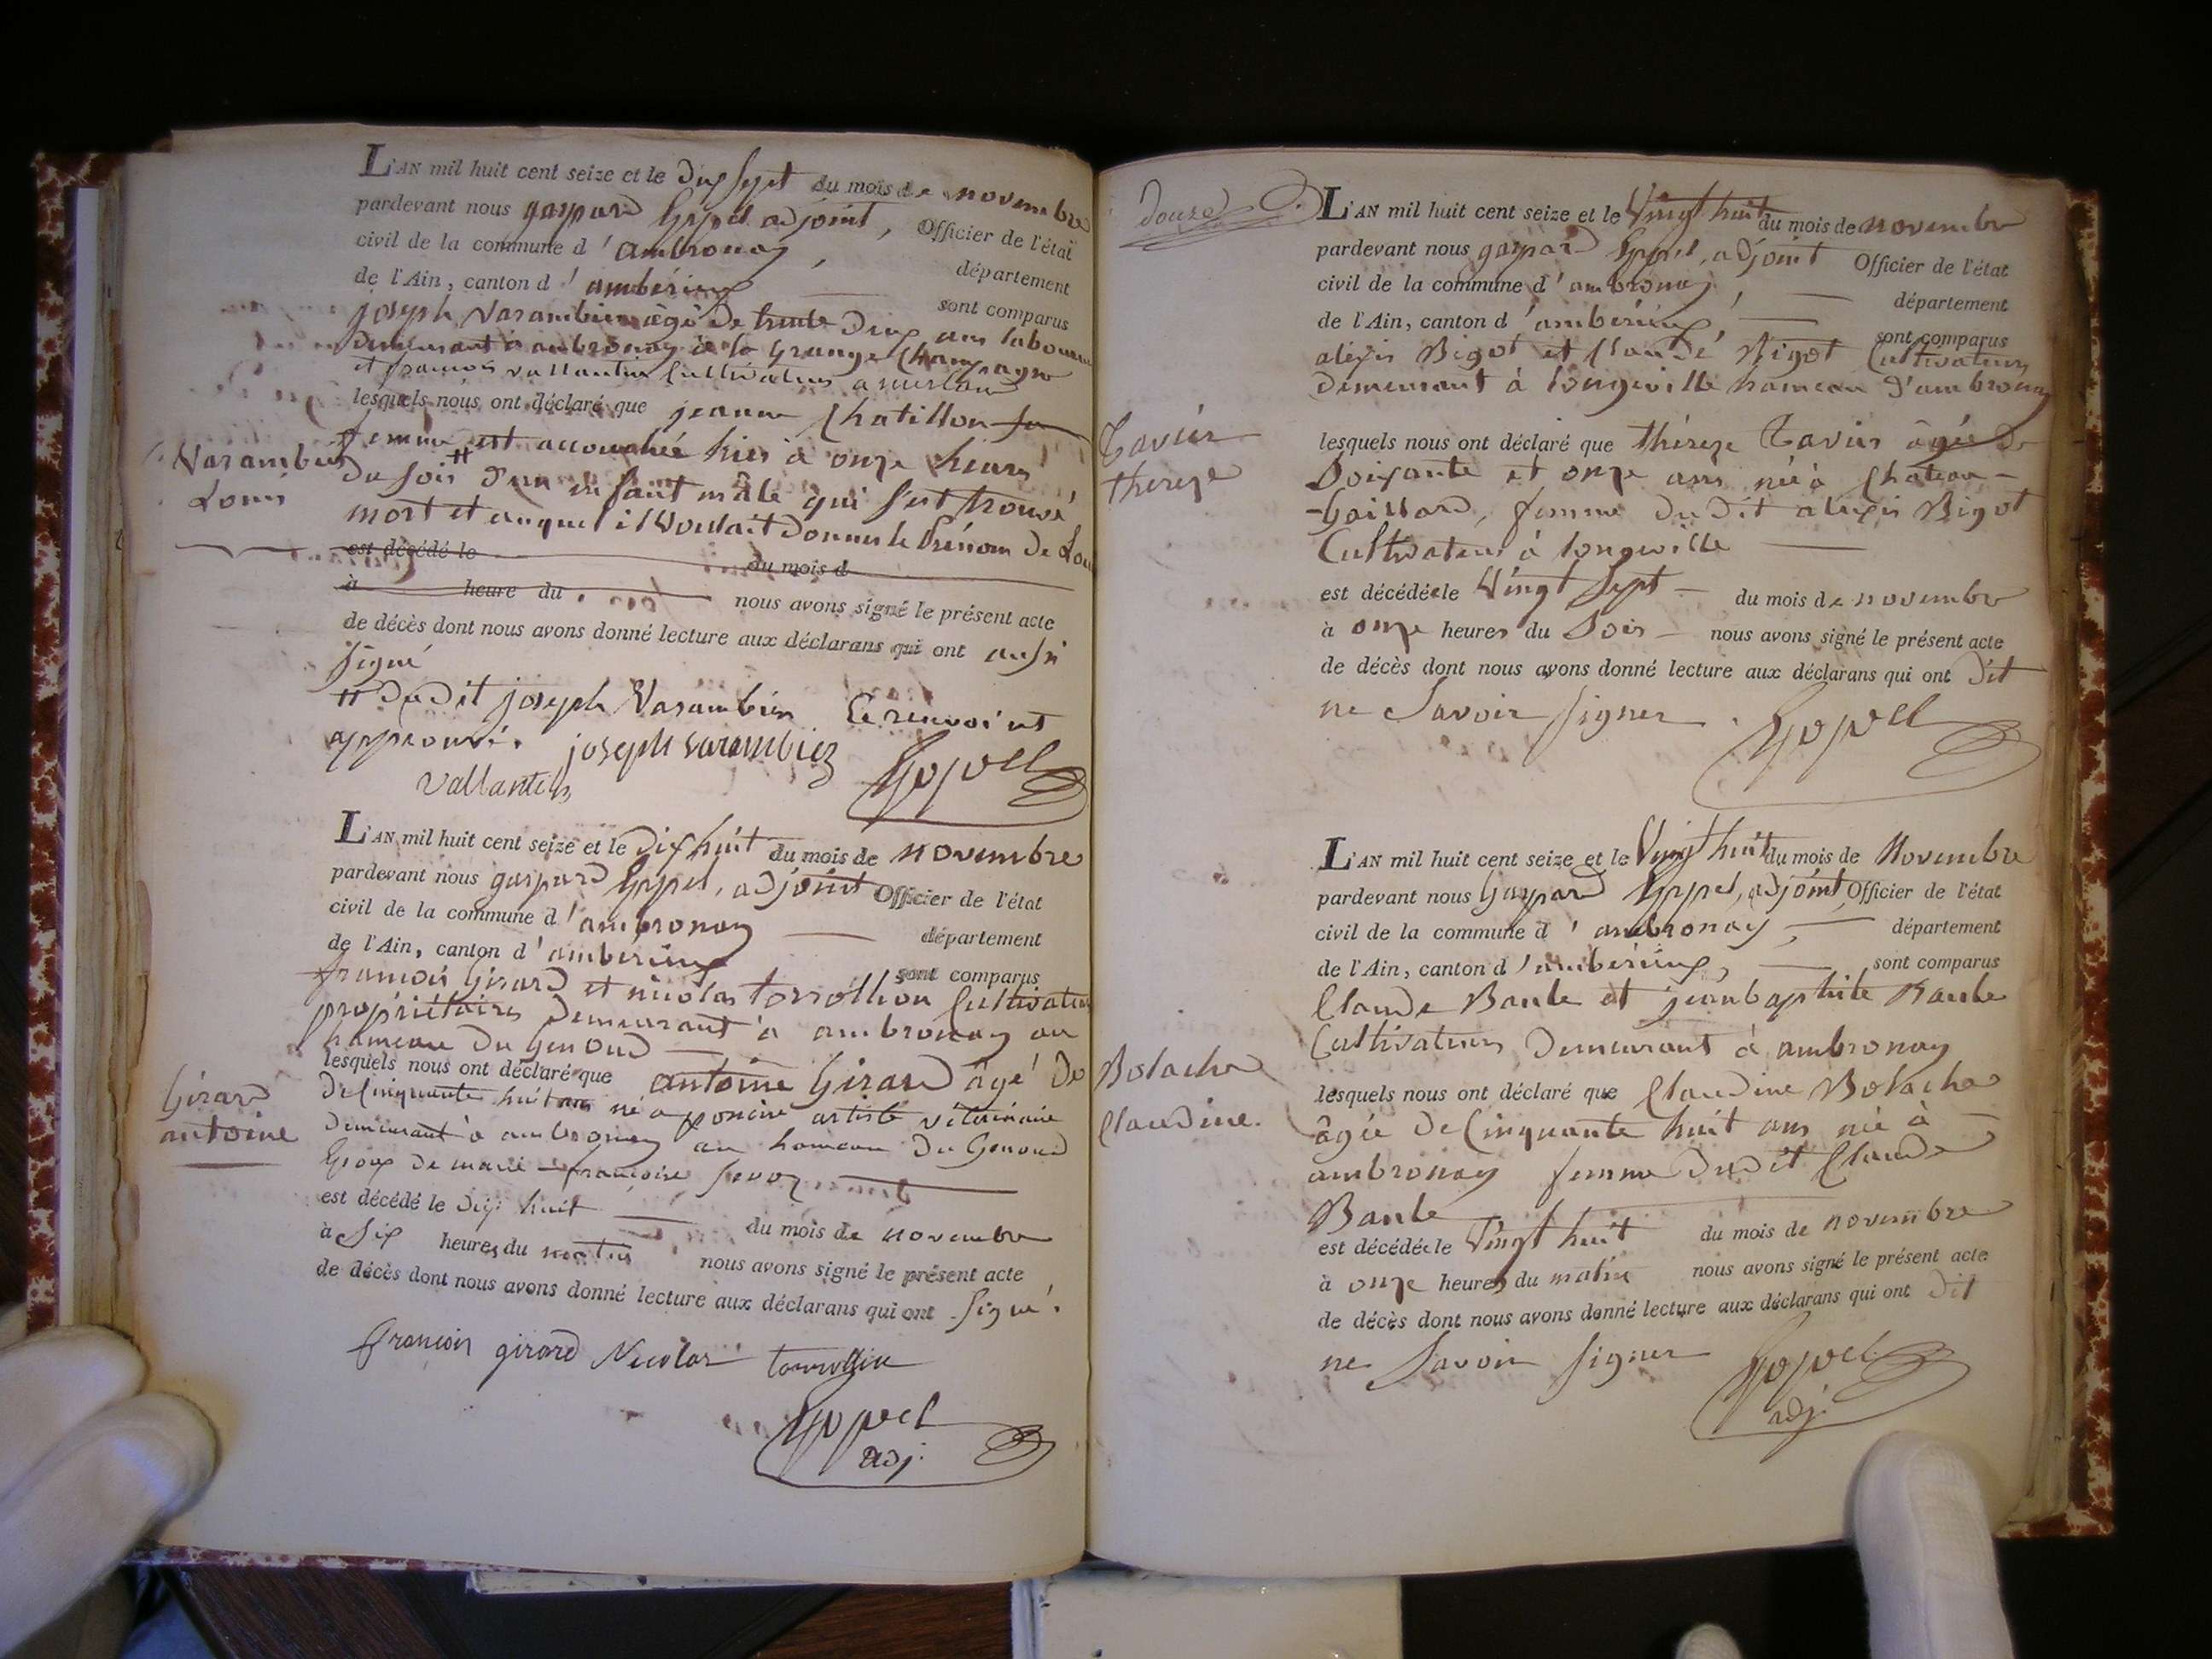 L'AN mil huit cent seize et le dix sept du mois de novembre
pardevant nous gaspard Goppel adjoint, Officier de l'état
civil de la commune d'ambronay, département
de l'Ain, canton d'ambérieux sont comparus
joseph Varambier âgé de trente deux ans laboureur
demeurant à ambronay à la Grange Champagne
et francois vallantin Cultivateur
lesquels nous ont déclaré que jeanne Chatillon sa
femme est accouchée hier à onze heures
Varambier
Louis
du soir # d'un enfant mâle qui s'est trouvé
mort et auquel il voulait donner le prénom de Louis
est décédé le du mois d
à heure du nous avons signé le présent acte
de décès dont nous avons donné lecture aux déclarans qui ont aussi
signé
# dudit joseph Varambier Ce renvoi est
approuvé. joseph varambier
Vallantin Goppel
L'AN mil huit cent seize et le dix huit du mois de novembre
pardevant nous gaspard Goppel, adjoint Officier de l'état
civil de la commune d'ambronay département
de l'Ain, canton d'ambérieux sont comparus
francois Girard et nicolas torrollion Cultivateurs
propriétaires demeurant à ambronay au
hameau du Genoud
lesquels nous ont déclaré que antoine Girard âgé de
Girard
antoine
de Cinquante huit ans né à poncin artiste vétérinaire
demeurant à ambronay au hameau du Genoud
Epoux de marie francoise
est décédé le dix huit du mois de novembre
à Six heures du matin nous avons signé le présent acte
de décès dont nous avons donné lecture aux déclarans qui ont signé.
francois girard Nicolas
Goppel
adj.
douze
L'AN mil huit cent seize et le Vingt huit du mois de novembre
pardevant nous gaspard Goppel, adjoint Officier de l'état
civil de la commune d'ambronay, département
de l'Ain, canton d'ambérieux, sont comparus
alexis Bigot et Claude Bigot Cultivateurs
demeurant à longeville hameau d'ambronay
Tavier
thereze
lesquels nous ont déclaré que théreze Tavier âgée de
Soixante et onze ans née à Chateau-
-Gaillard, femme dudit alexis Bigot
Cultivateur à longeville
est décédée le Vingt Sept du mois de novembre
à onze heures du Soir nous avons signé le présent acte
de décès dont nous avons donné lecture aux déclarans qui ont dit
ne Savoir signer. Goppel
L'AN mil huit cent seize et le Vingt huit du mois de Novembre
pardevant nous Gaspard Goppel, adjoint, Officier de l'état
civil de la commune d'ambronay, département
de l'Ain, canton d'ambérieux, sont comparus
Claude Bante et jeanbaptiste Bante
Cultivateurs demeurant à ambronay
Bolache
Claudine.
lesquels nous ont déclaré que Claudine Bolache
âgée de Cinquante huit ans née à
ambronay femme dudit Claude
Bante
est décédée le Vingt huit du mois de novembre
à onze heures du matin nous avons signé le présent acte
de décès dont nous avons donné lecture aux déclarans qui ont dit
ne Savoir signer Goppel
adj.